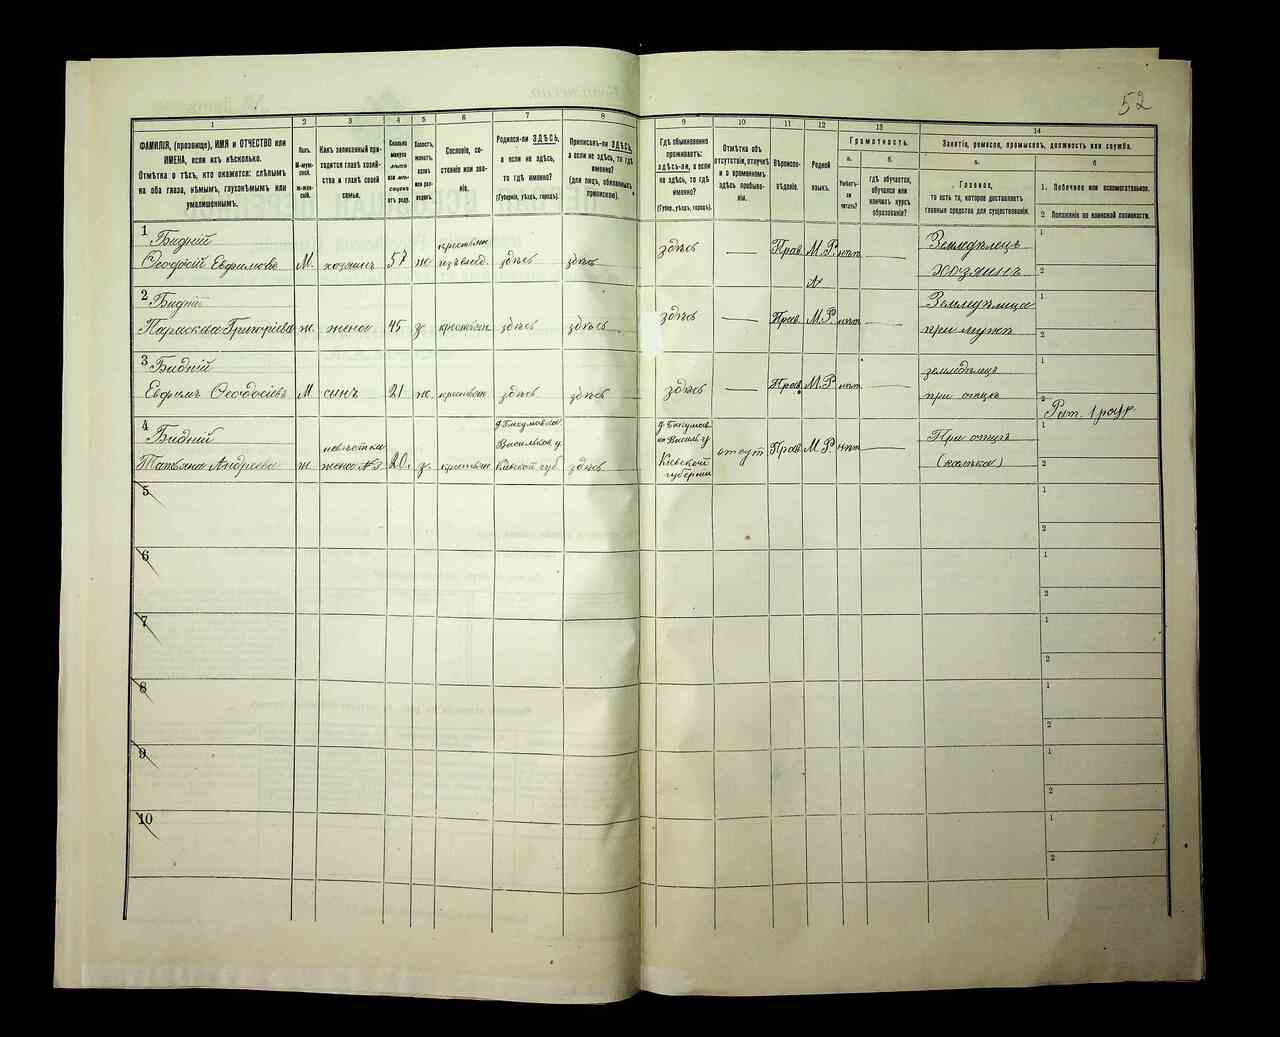 52
1
2
3
4
5
6
7
8
9
10
11
12
13
14
ФАМИЛІЯ, (прозвище), ИМЯ и ОТЧЕСТВО или
ИМЕНА, если ихъ нѣсколько.
Отмѣтка о тѣхъ, кто окажется: слѣпымъ
на оба глаза, нѣмымъ, глухонѣмымъ или
умалишеннымъ.
Полъ.
М-мужской.
Ж-женскій.
Какъ записанный приходится главѣ хозяйства и главѣ своей семьи.
Сколько минуло лѣтъ или мѣсяцевъ отъ роду.
Холостъ, женатъ, вдовъ или разведенъ.
Сословіе, состояніе или званіе.
Родился-ли ЗДѢСЬ,
а если не здѣсь,
то гдѣ именно?
(Губернія, уѣздъ, городъ).
Приписанъ-ли ЗДѢСЬ,
а если не здѣсь, то гдѣ
именно?
(для лицъ, обязанныхъ
припискою).
Гдѣ обыкновенно
проживаетъ:
здѣсь-ли, а если
не здѣсь, то гдѣ
именно?
(Губер., уѣздъ, городъ).
Отмѣтка объ
отсутствіи, отлучкѣ
и о временномъ
здѣсь пребываніи.
Вѣроисповѣданіе.
Родной
языкъ.
Грамотность.
а.
б.
Умѣетъ-ли
читать?
гдѣ обучается,
обучался или
кончилъ курсъ
образованія?
Занятіе, ремесло, промыселъ, должность или служба.
а.
б
Главное,
то есть то, которое доставляетъ
главныя средства для существованія.
1. Побочное или вспомогательное.
2 Положеніе по воинской повинности.
1
Бидній
Ѳеодосій Евфимовъ
М.
хозяинъ
57
ж
крестьян
изъ влад.
здѣсь
здѣсь
здѣсь
—
Прав.
М.Р.
нѣт
—
Земледѣлецъ
хозяинъ
1
2
2
Бидній
Параскева Григоріева
ж.
жена
45
з.
крестьян.
здѣсь
здѣсь
здѣсь
—
Прав.
М.Р.
нѣт
—
Земледѣлица
при мужѣ
1
2
3
Бидній
Евфимъ Ѳеодосіевъ
М
синъ
21
ж.
крестьян.
здѣсь
здѣсь
здѣсь
—
Прав.
М.Р
нѣт
—
земледѣлецъ
при отцѣ
1
2
Рат. 1 разр
4
Бидний
Татьяна Андреева
ж
невѣстка
жена №3
20.
з.
крестьян.
Васильков у
Кіевской губ
здѣсь
Васильк у
Кіевской
губерніи
отсут
Прав
М Р
нѣт
—
При отцѣ
1
2
5
1
2
6
1
2
7
1
2
8
1
2
9
1
2
10
1
2